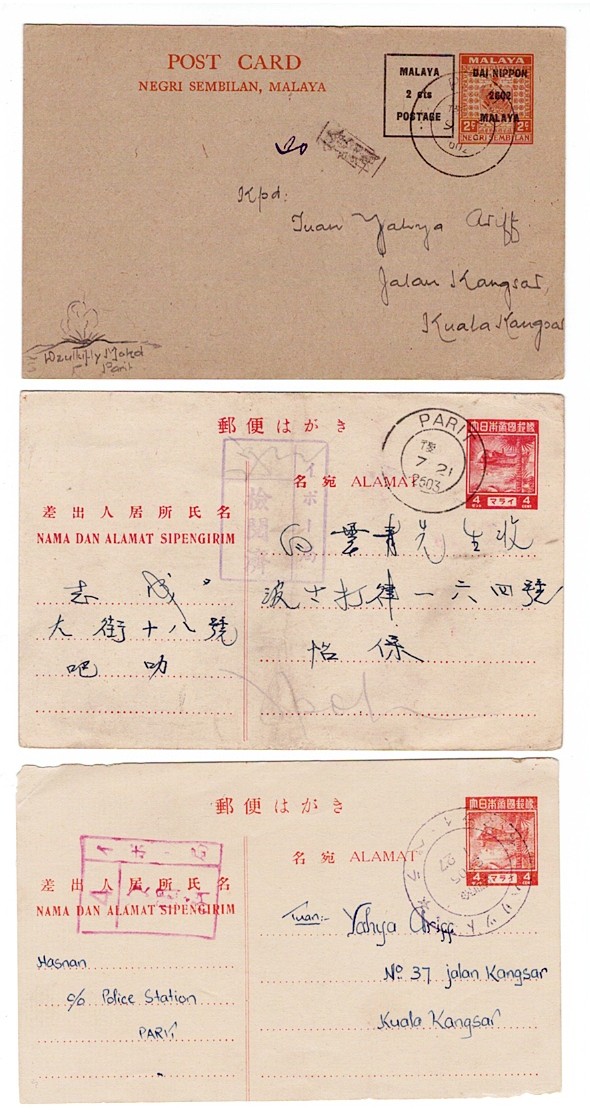 POST CARD
NEGRI SEMBILAN, MALAYA
MALAYA
2 cts
POSTAGE
MALAYA
DAI NIPPON
2602
MALAYA
2c 2c
NEGRI SEMBILAN
Kpd:
Tuan Yahya Ariff
Jalan Kangsar,
Kuala Kangsar
Parit
郵便はがき
PARIT
7 21
2603
大日本帝國郵便
4 マライ 4
イポー局
検閲済
名宛 ALAMAT
差出人居所氏名
NAMA DAN ALAMAT SIPENGIRIM
白雲青先生收
波士打律一六四號
怡保
志成
大街十八號
吧叻
郵便はがき
大日本帝國郵便
4 マライ 4
名宛 ALAMAT
差出人居所氏名
NAMA DAN ALAMAT SIPENGIRIM
Tuan:- Yahya Ariff
No 37 jalan Kangsar
Kuala Kangsar
Hasnan
c/o Police Station
PARIT